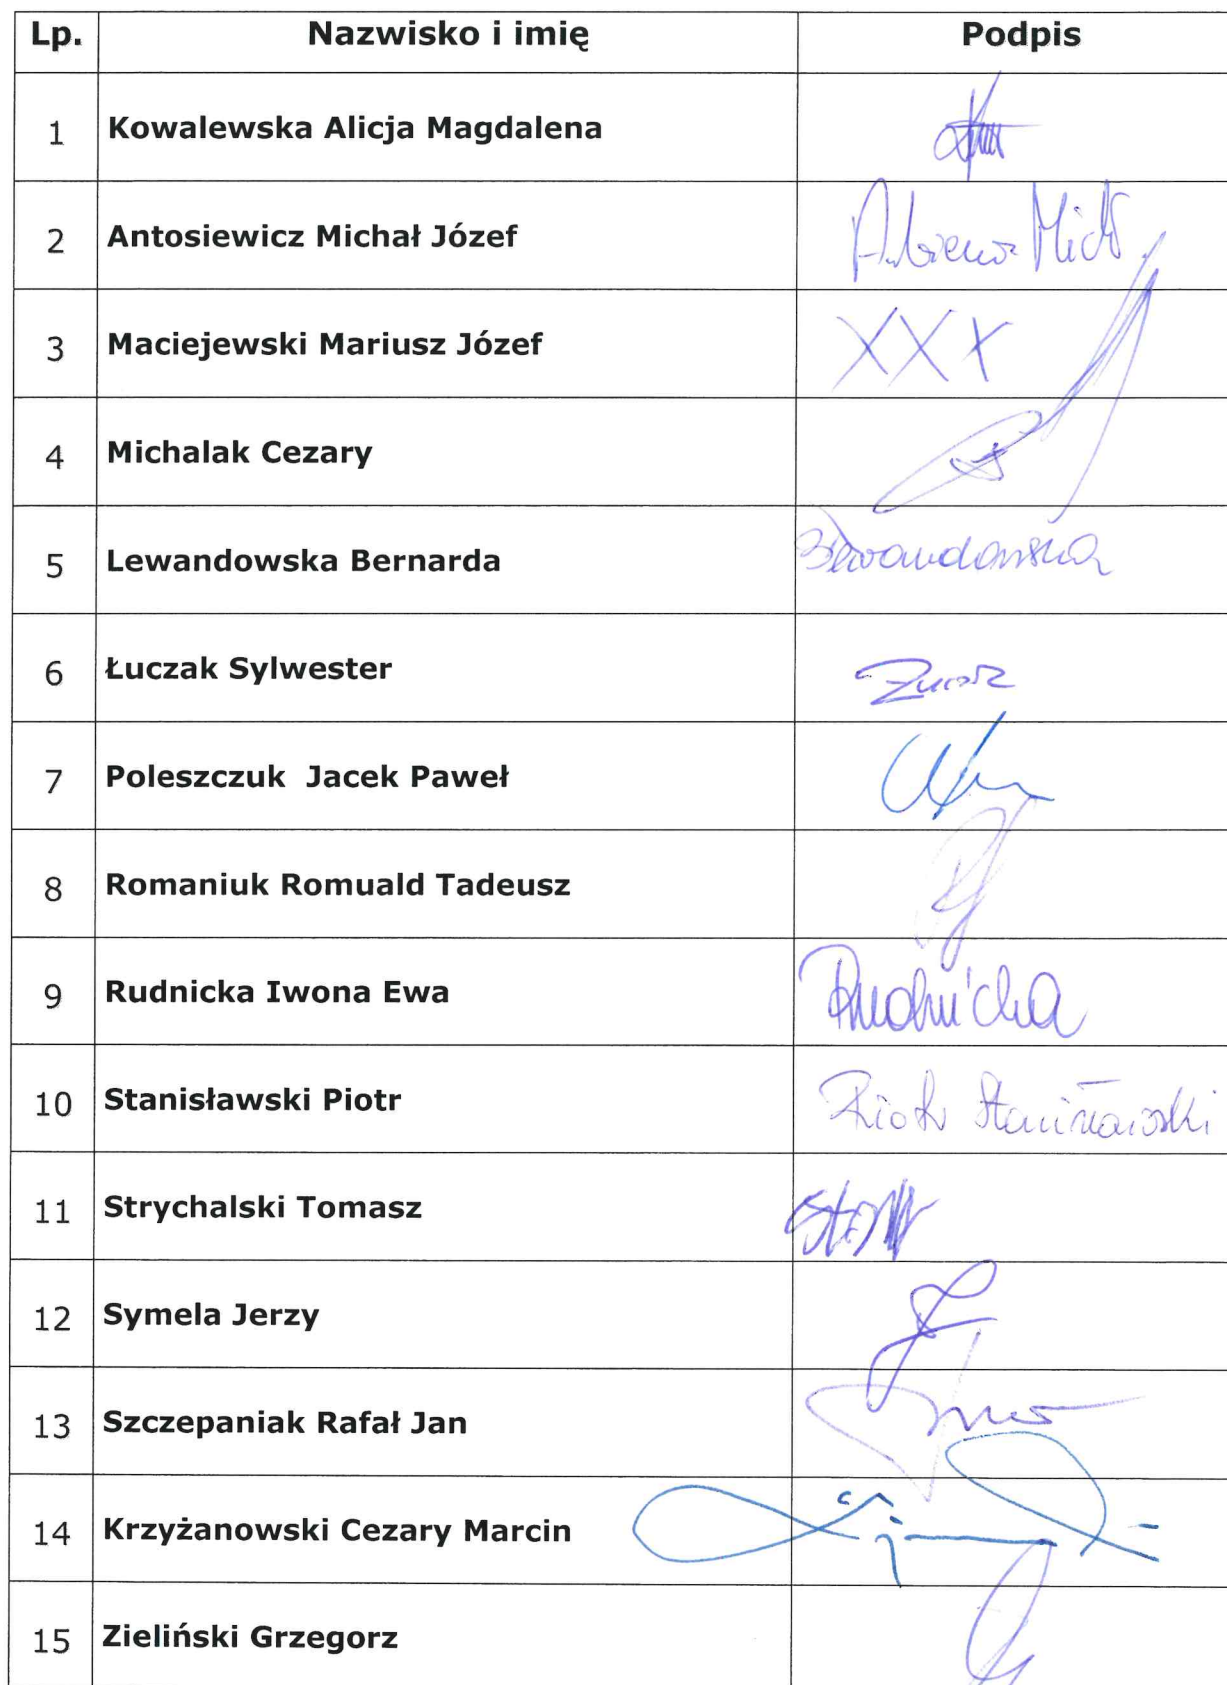 Lp. Nazwisko i imię Podpis
1 Kowalewska Alicja Magdalena
2 Antosiewicz Michał Józef
3 Maciejewski Mariusz Józef XXX
4 Michalak Cezary
5 Lewandowska Bernarda BLewandowska
6 Łuczak Sylwester
7 Poleszczuk Jacek Paweł
8 Romaniuk Romuald Tadeusz
9 Rudnicka Iwona Ewa Rudnicka
10 Stanisławski Piotr Piotr Stanisławski
11 Strychalski Tomasz
12 Symela Jerzy
13 Szczepaniak Rafał Jan
14 Krzyżanowski Cezary Marcin
15 Zieliński Grzegorz